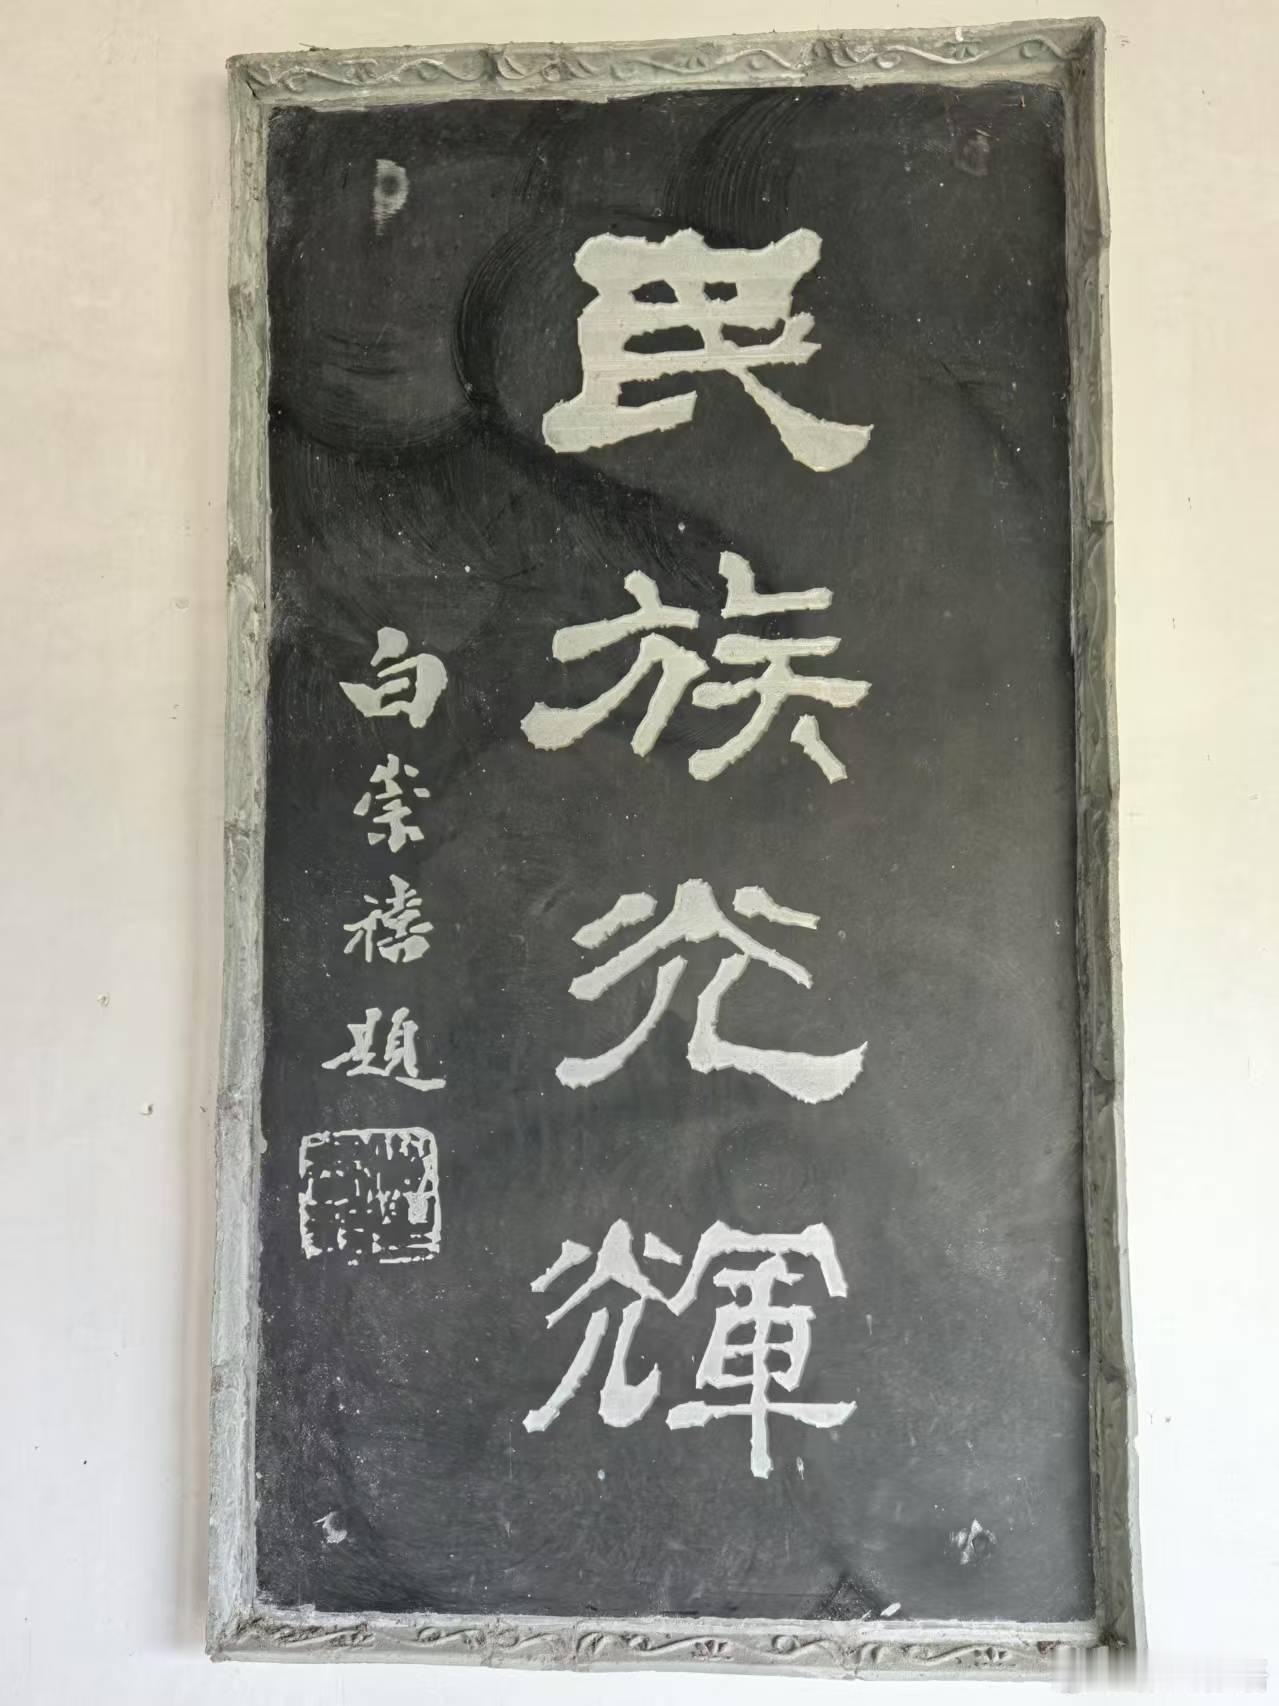 民族光輝
白崇禧題